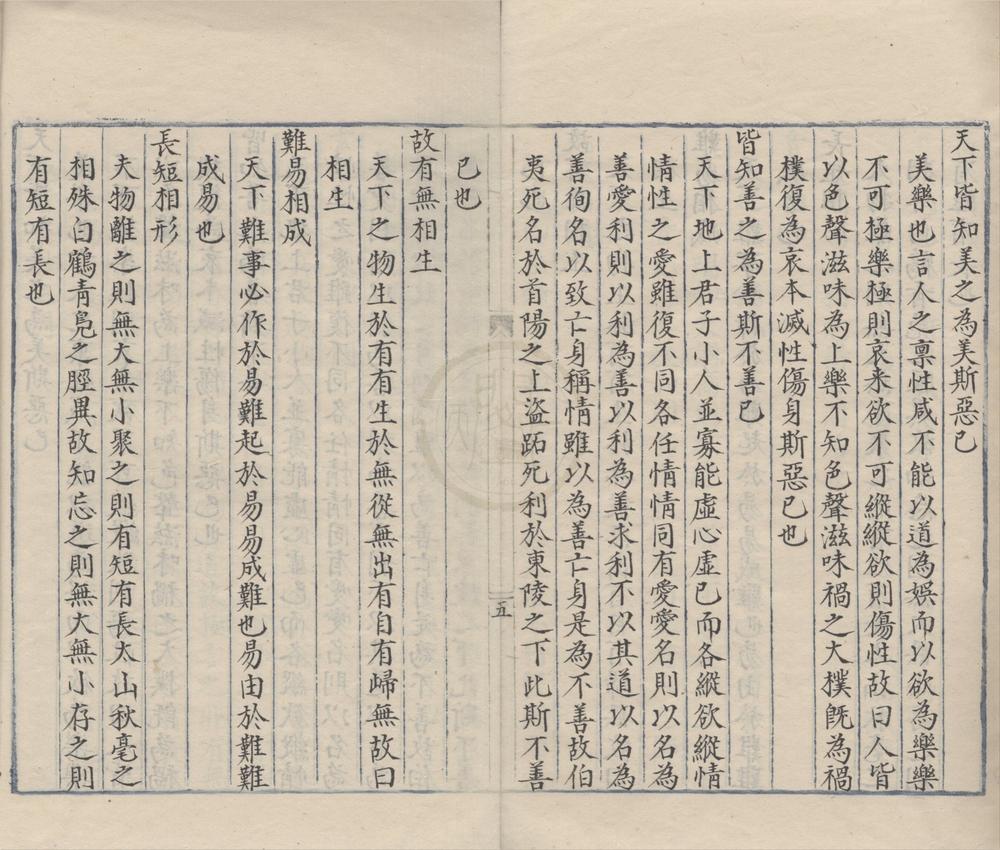 天下皆知美之為美斯惡已
美樂也言人之禀性咸不能以道為娛而以欲為樂樂
不可極樂極則哀来欲不可縱縱欲則傷性故曰人皆
以色聲滋味為上樂不知色聲滋味禍之大樸旣為禍
樸復為哀本滅性傷身斯惡已也
皆知善之為善斯不善已
天下地上君子小人並寡能虛心虛已而各縱欲縱情
情性之愛雖復不同各任情情同有愛愛名則以名為
善愛利則以利為善以利為善求利不以其道以名為
善徇名以致亡身稱情雖以為善亡身是為不善故伯
夷死名於首陽之上盜跖死利於東陵之下此斯不善
已也
故有無相生
天下之物生於有有生於無從無出有自有歸無故曰
相生
難易相成
天下難事必作於易難起於易易成難也易由於難難
成易也
長短相形
夫物離之則無大無小聚之則有短有長太山秋毫之
相殊白鶴青鳧之脛異故知忘之則無大無小存之則
有短有長也
五